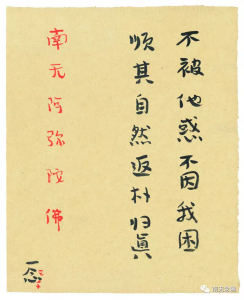 不被他惑不因我困
顺其自然返朴归真
南无阿弥陀佛
一念